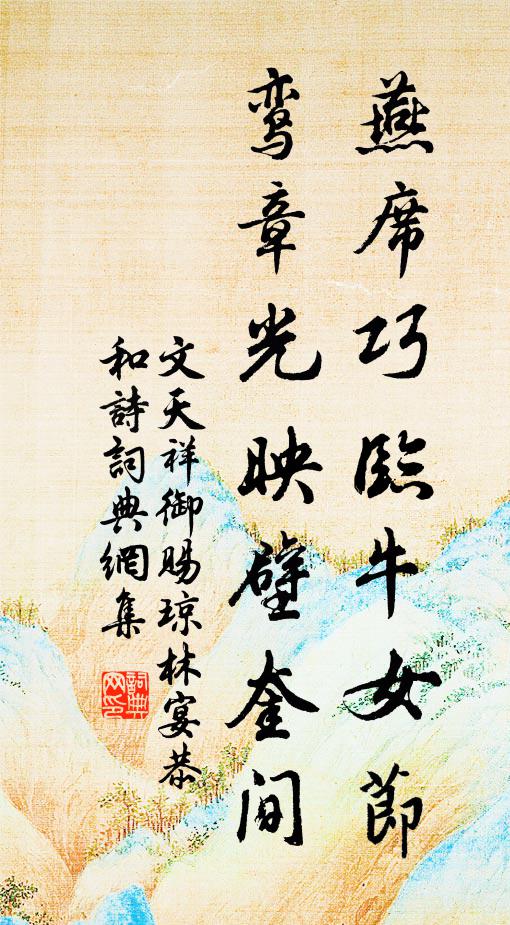 燕席巧臨牛女節
鸾章光映壁奎间
文天祥御赐琼林宴恭
和詩詞典網集
詞典
网印